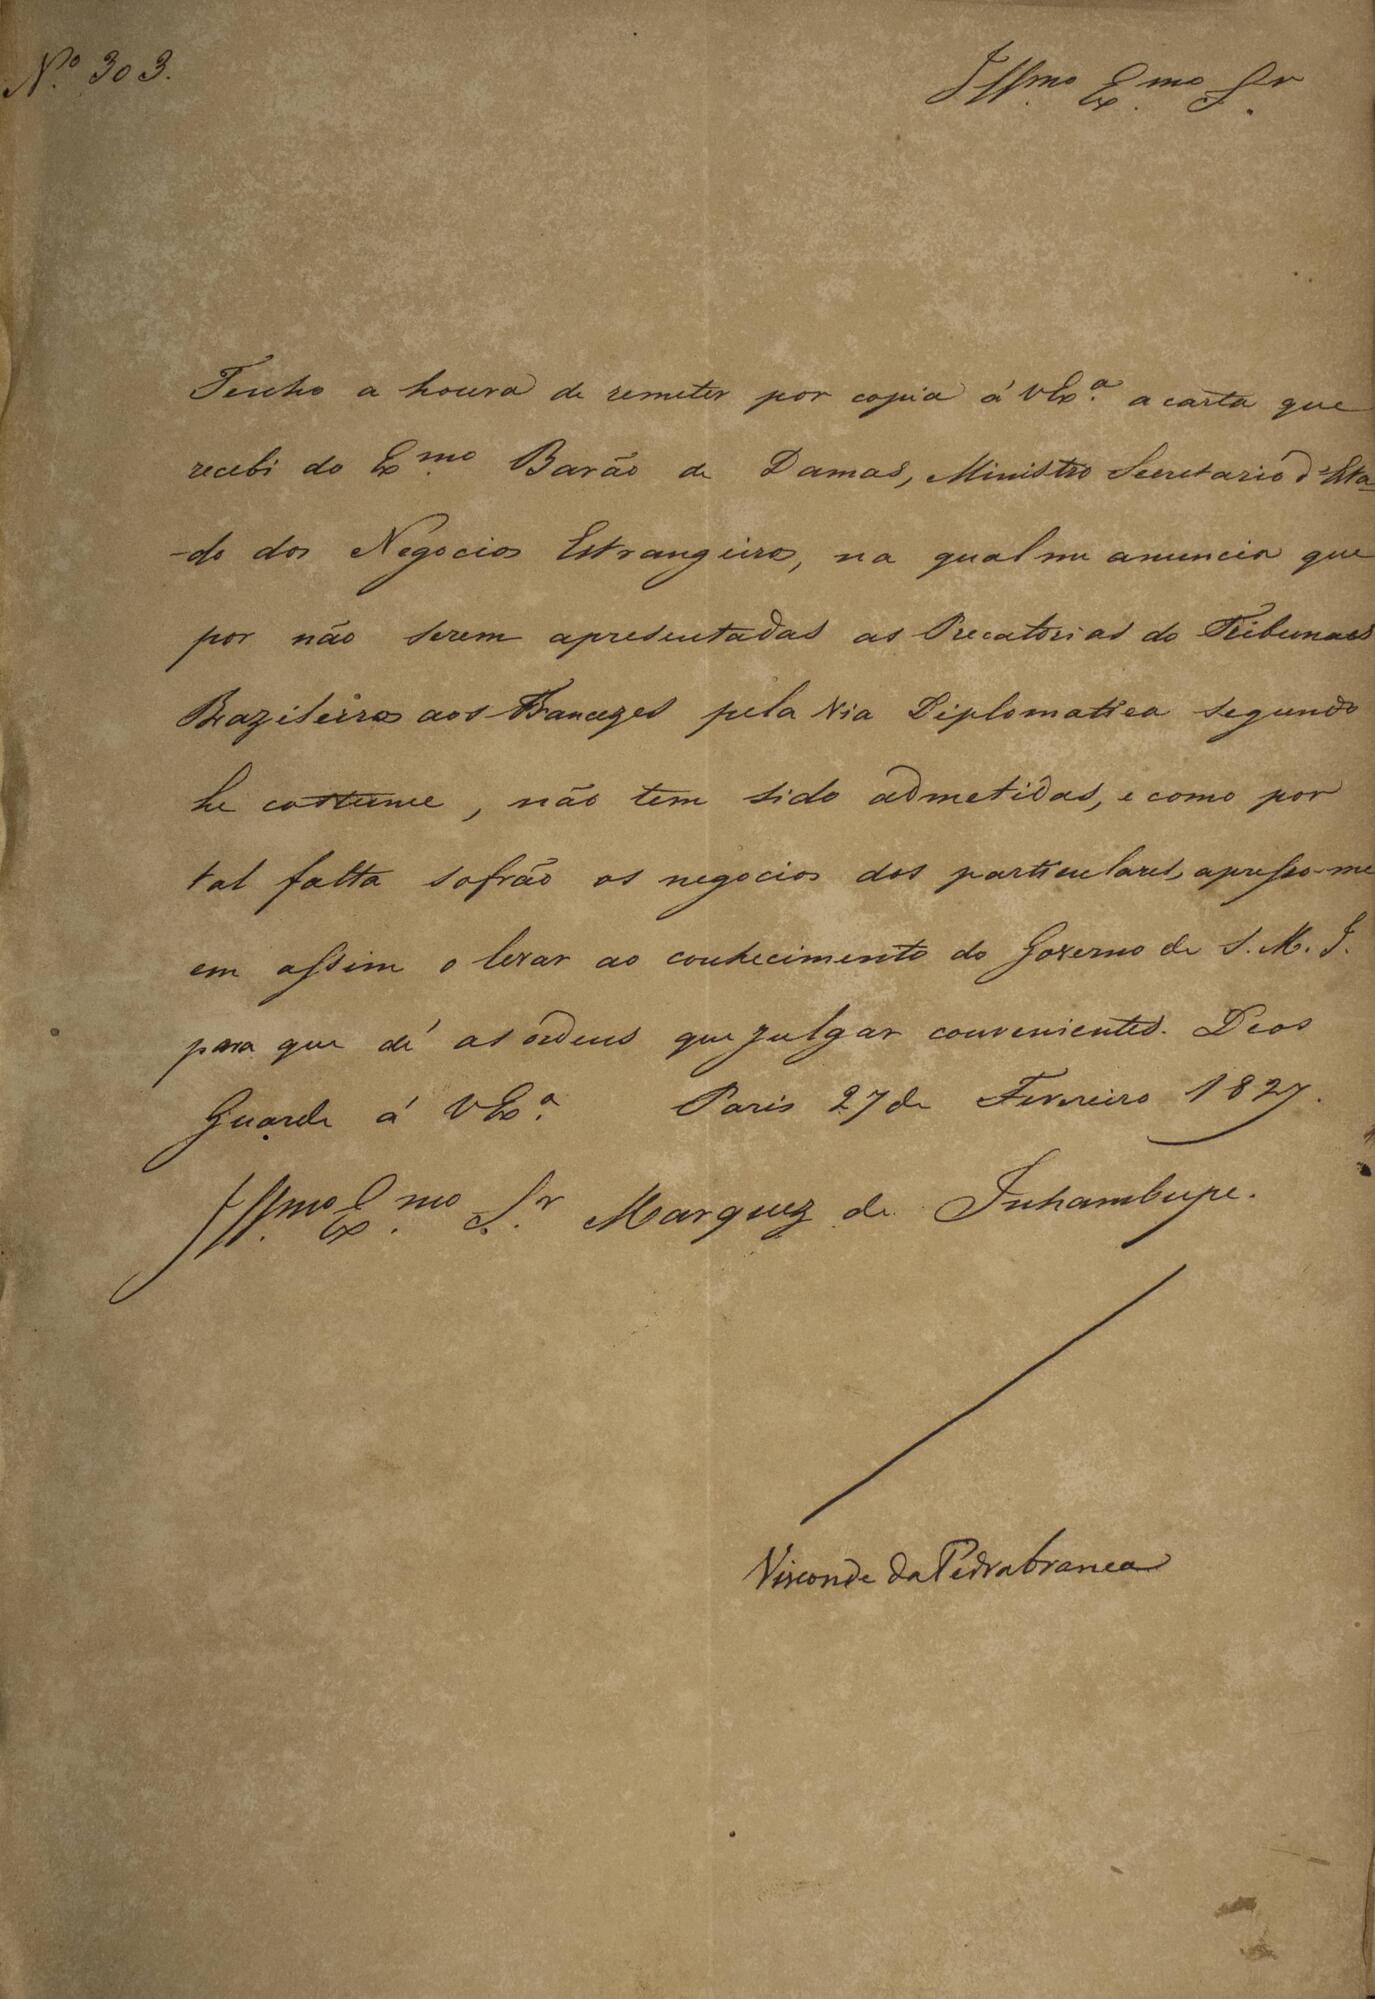 Nº 303.
Illmo. Exmo. Sr.
Tenho a honra de remeter por copia á VExª. a carta que
recebi do Exmo. Barão de Damas, Ministro Secretario d'Esta-
-do dos Negocios Estrangeiros, na qual me anuncia que
por não serem apresentadas as Precatorias do Tribunaes
Brazileiros aos Francezes pela Via Diplomatica segundo
he costume, não tem sido admetidas, e como por
tal falta sofrão os negocios dos particulares, apresso-me
em assim o levar ao conhecimento do Governo de S. M. I.
para que dé as ordens que julgar convenientes. Deos
Guarde á VExª. Paris 27 de Fevereiro 1827.
Illmo. Exmo. Sr. Marquez de Inhambupe.
Visconde da Pedrabranca